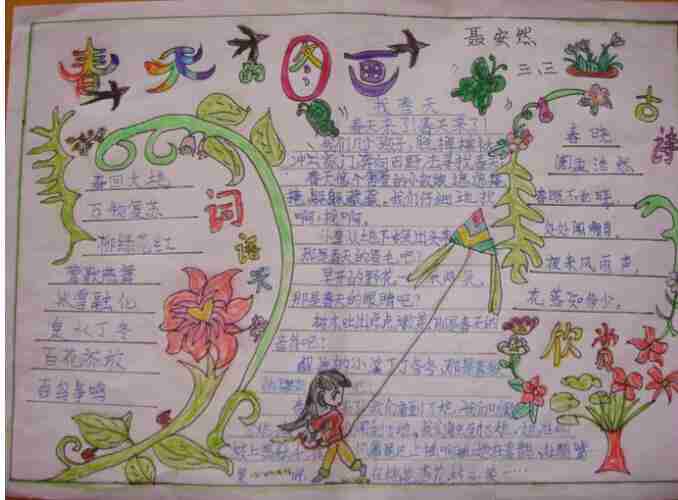 春天的图画
聂安然
三、三
词语天
春回大地
万物复苏
柳绿花红
莺歌燕舞
冰雪融化
泉水丁冬
百花齐放
百鸟争鸣
找春天
春天来了！春天来了！
我们几个孩子，脱掉棉袄，
冲出家门，奔向田野，去寻找春
春天像个害羞的小姑娘，遮遮掩
掩，躲躲藏藏。我们仔细地找
啊，找啊。
小草从地下探出头来，
那是春天的眉毛吧？
早开的野花一朵两朵，
那是春天的眼睛吧？
树木吐出点点嫩芽，那是春天的
音符吧！
解冻的小溪丁丁冬冬，那是春天
古诗
欣赏
春晓
孟浩然
春眠不觉晓，
处处闻啼鸟。
夜来风雨声，
花落知多少。